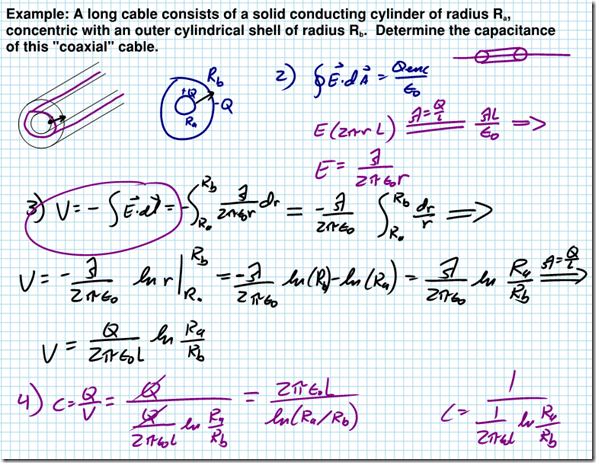 Example: A long cable consists of a solid conducting cylinder of radius Ra,
concentric with an outer cylindrical shell of radius Rb. Determine the capacitance
of this "coaxial" cable.
Rb
+Q
-Q
Ra
2) ∮E⃗·dA⃗ = Qenc/ε0
E(2πrL) λ=Q/L ⟹ λL/ε0 ⟹
E = λ/(2πε0r)
3) V = -∫E⃗·dl⃗ = -∫Ra^Rb λ/(2πε0r) dr = -λ/(2πε0) ∫Ra^Rb dr/r ⟹
V = -λ/(2πε0) ln r |Ra^Rb = -λ/(2πε0) ln(Rb)-ln(Ra) = λ/(2πε0) ln Ra/Rb λ=Q/L ⟹
V = Q/(2πε0L) ln Ra/Rb
4) C = Q/V = Q/(Q/(2πε0L) ln Ra/Rb) = 2πε0L/ln(Ra/Rb)
C = 1/(1/(2πε0L) ln Ra/Rb)